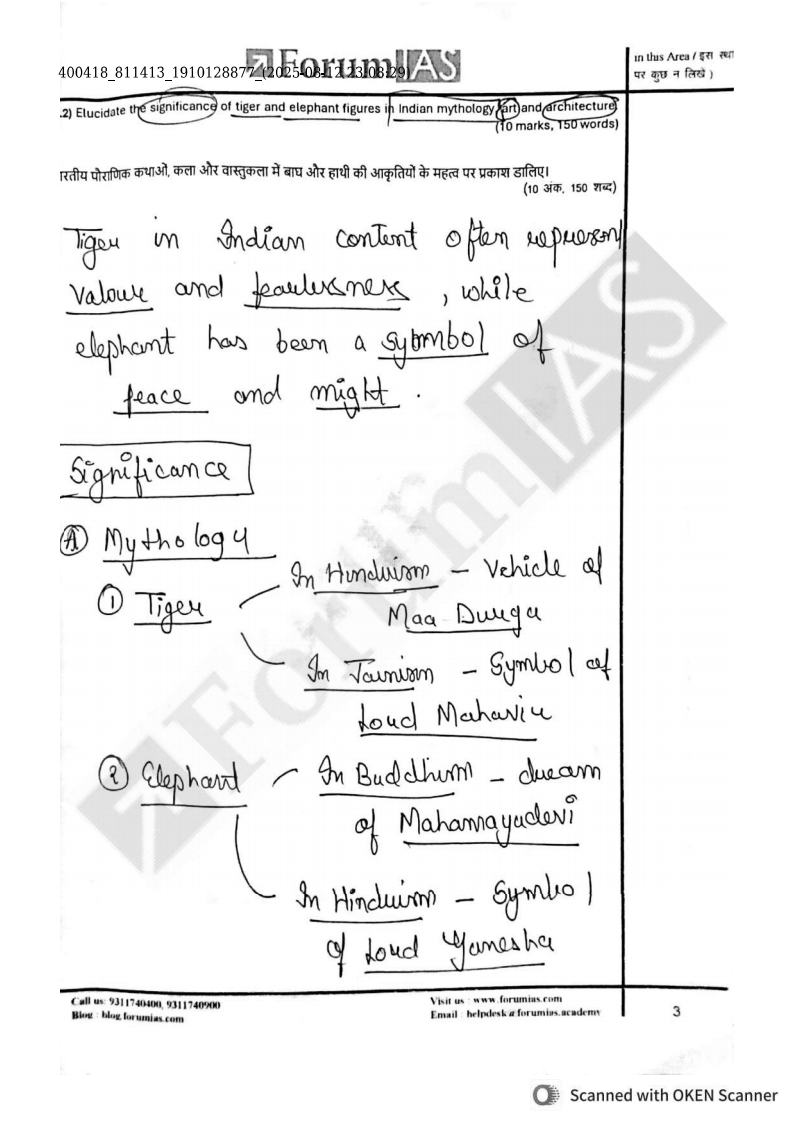 Forum IAS
400418_811413_1910128877_(2025-08-12 23:08:29)
in this Area / इस स्था
पर कुछ न लिखें )
.2) Elucidate the significance of tiger and elephant figures in Indian mythology art and architecture
(10 marks, 150 words)
ारतीय पौराणिक कथाओं, कला और वास्तुकला में बाघ और हाथी की आकृतियों के महत्व पर प्रकाश डालिए।
(10 अंक, 150 शब्द)
Tiger in Indian content often represent
valour and fearlessness, while
elephant has been a symbol of
peace and might.
Significance
A Mythology
1 Tiger
In Hinduism - Vehicle of
Maa Durga
In Jainism - Symbol of
Lord Mahavir
2 Elephant
In Buddhism - dream
of Mahamayadevi
In Hinduism - Symbol
of Lord Ganesha
Call us: 9311740400, 9311740900
Blog : blog.forumias.com
Visit us : www.forumias.com
Email : helpdesk@forumias.academy
3
Forum IAS
Scanned with OKEN Scanner